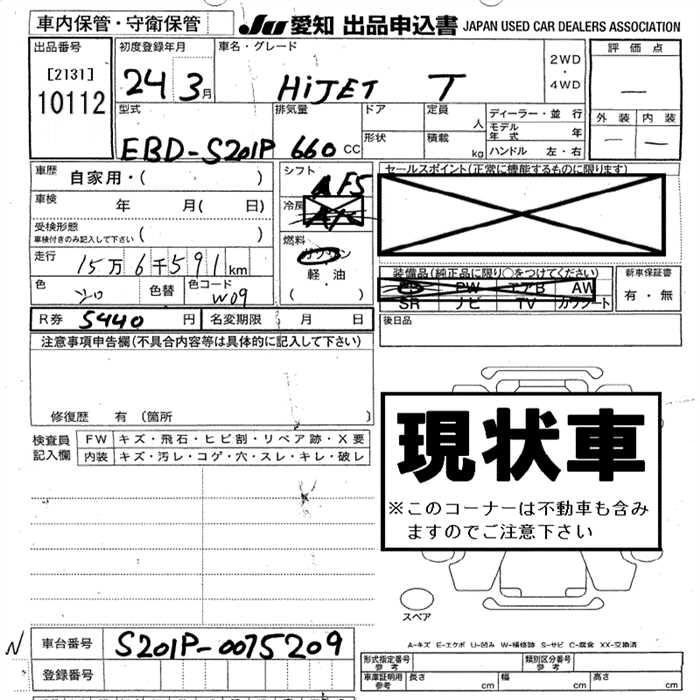 車内保管・守衛保管
JU 愛知 出品申込書 JAPAN USED CAR DEALERS ASSOCIATION
出品番号
[2131]
10112
初度登録年月
24 3月
車名・グレード
HiJET T
2WD
・
4WD
評価点
—
外装 内装
— —
型式
EBD-S201P
排気量
660 CC
ドア
形状
定員 人
積載 kg
ディーラー・並行
モデル年式 年
ハンドル 左・右
車歴 自家用・( )
車検 年 月( 日)
受検形態
車検付きのみ記入して下さい ( )
走行 15万6千591km
色 シロ 色替 色コード W09
シフト
AF5
冷房
A/C
燃料
ガソリン
軽油
( )
セールスポイント(正常に機能するものに限ります)
装備品(純正品に限り○をつけてください)
PS PW エアB AW
SR ナビ TV カワシート
新車保証書
有・無
R券 5440 円 名変期限 月 日
後日品
注意事項申告欄(不具合内容等は具体的に記入して下さい)
修復歴 有 (箇所 )
検査員記入欄
FW キズ・飛石・ヒビ割・リペア跡・X要
内装 キズ・汚レ・コゲ・穴・スレ・キレ・破レ
現状車
※このコーナーは不動車も含み
ますのでご注意下さい
スペア
A-キズ E-エクボ U-凹み W-補修跡 S-サビ C-腐食 XX-交換済
N 車台番号 S201P-0075209
登録番号
形式指定番号参考 類別区分番号参考
車庫証明用参考 長さ cm 幅 cm 高さ cm